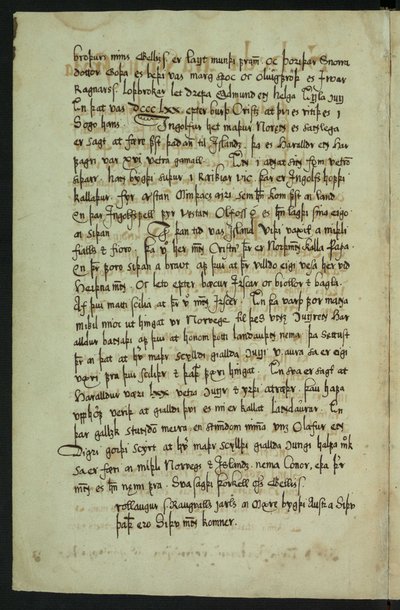 broþurs mins Gellis er langt munþi framm oc þoriþar Snorra
dottor Goþa es bęþi vas margspoc oc oluigfroþ es Ivar
Ragnarss loþbrokar let drepa Eadmund en helga Engla kgg
En þat vas dccc lxx epter burþ Crists at þvi es ritiþ es i
Sogo hans. Ingolfur het maþur Norǫns es sanlega
er sagt at fǿri fyrst þaþan til Islandz þa es Haralldr en Har
fagri var xvi vetra gamall. En i annat sinn fǫm vetrō
siþarr. hann bygþi suþur i Reikiar vic. þar er Ingolfs hǫfþi
kallaþur. fyr austan Minþacs eyri sem hann kom fyrst a land
en þar Ingolfsfell fyr vestan Olfoss ǫ́ es hann lagþi sina eigo
a siþan. I þan tiþ vas Island viþi vaxit a miþli
fialls oc fioro. þa vǫ́ her menn Cristnir þeir es Norþmenn kalla Papa
en þeir foro siþan a braut. af þvi at þeir villdo eigi vesa her viþ
heiþna menn. oc leto epter bǿcur Irscar oc biollor oc bagla.
Af þvi mátti scilia at þeir vǫ́ menn Irscer. En þa varþ for manna
mikil mioc ut hingat ur Norvege til þes unz konungren Har
alldur bannaþi af þvi at honom þotti landauþn nema þa sættusc
þeir a þat at hver maþr scylldi giallda kongi v. aura sa er eigi
vǽri fra þvi sciliþr oc þaþan fǿri hingat. En sva er sagt at
Haralldur vǽri lxx vetra kongr oc yrþi attrǿþr. þau hafa
upphǫf veriþ at gialldi þvi es nu er kallat landaurar. En
þar gallzk stundō meira en stundom minna unz Olafur en
Digri gorþi scyrt at hver maþr scylldi giallda konungi halfa mork
sa er fǿri a miþli Norvegs oc Islandz. nema conor, eþa þeir
menn es hann nǽmi fra. Sva sagþi þorkell oss Gellis s.
rollaugur s. Raugvallz jarls a Mǽre bygþi austr a Siþu
þaþan ero Siþu menn komner.